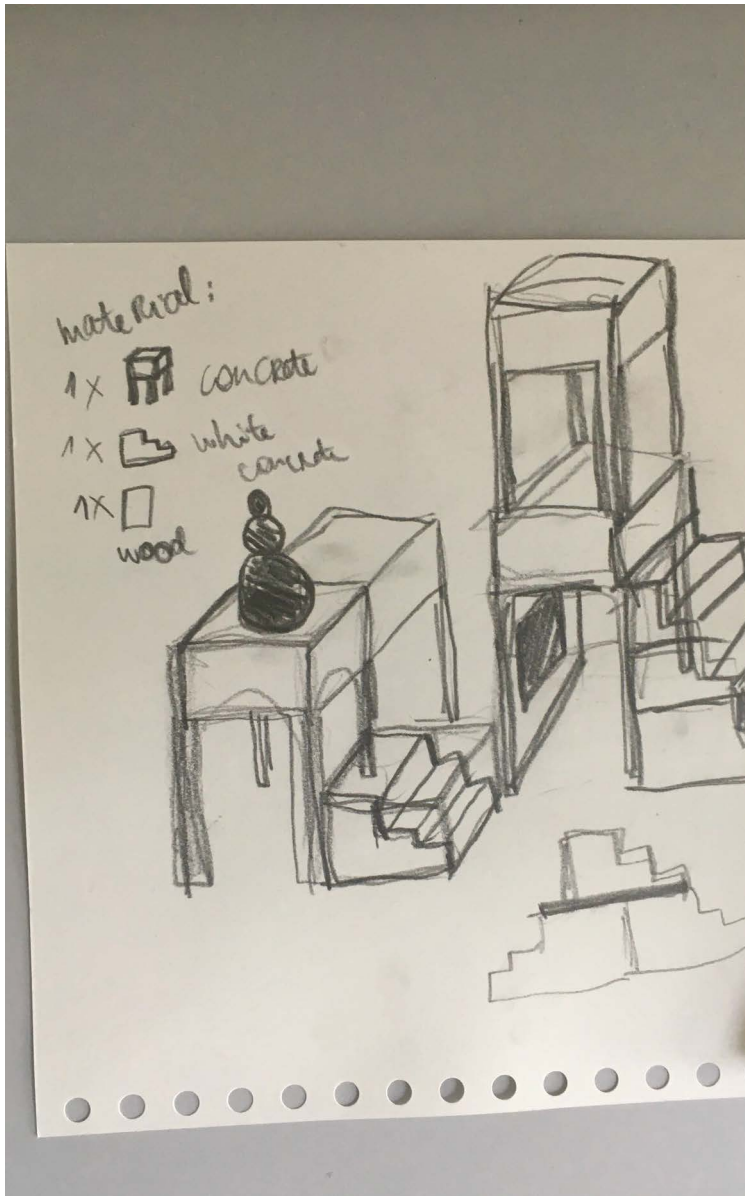 mateRial:
1x concRete
1x white
concrete
1x
wood